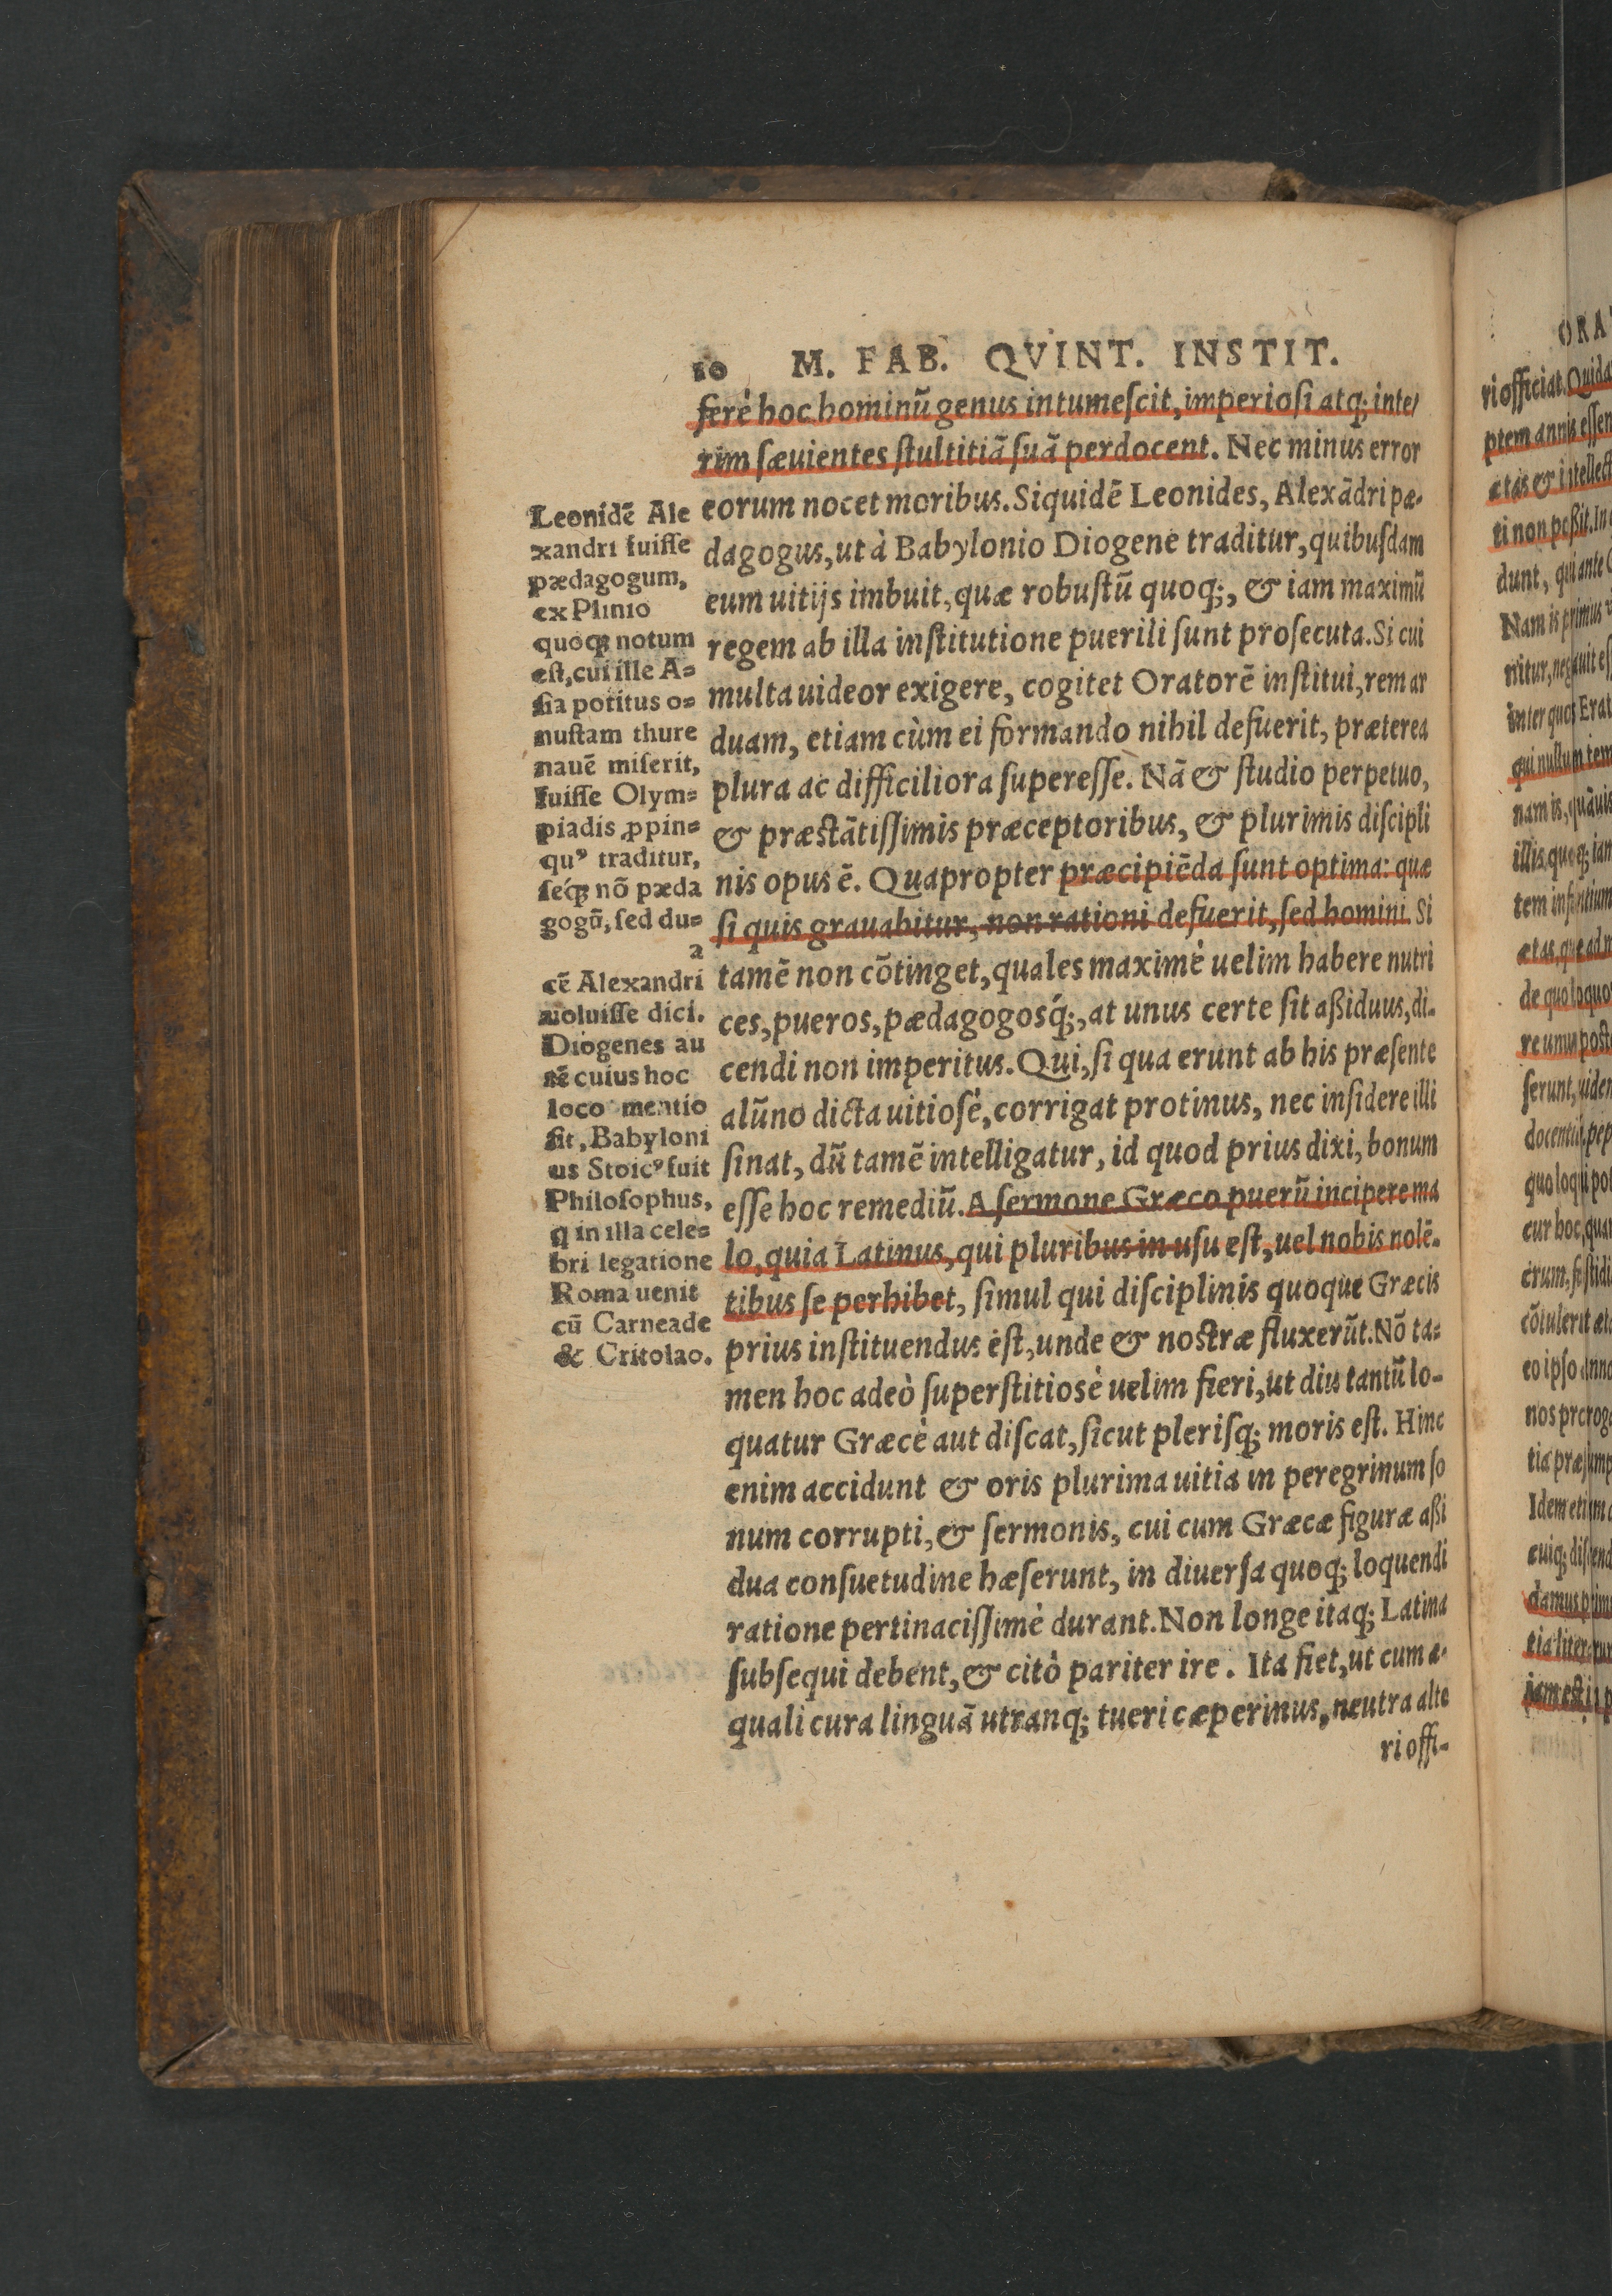 10 M. FAB. QVINT. INSTIT.
ferè hoc hominũ genus intumeſcit, imperioſi atq; inte/
rim ſæuientes ſtultitiã ſuã perdocent. Nec minus error
eorum nocet moribus. Siquidẽ Leonides, Alexãdri pæ-
dagogus, ut à Babylonio Diogene traditur, quibuſdam
eum uitijs imbuit, quæ robuſtũ quoq;, & iam maximũ
regem ab illa inſtitutione puerili ſunt proſecuta. Si cui
multa uideor exigere, cogitet Oratorẽ inſtitui, rem ar
duam, etiam cùm ei formando nihil defuerit, præterea
plura ac difficiliora ſupereſſe. Nã & ſtudio perpetuo,
& præſtãtiſſimis præceptoribus, & plurimis diſcipli
nis opus ẽ. Quapropter præcipiẽda ſunt optima: quæ
ſi quis grauabitur, non rationi defuerit, ſed homini. Si
tamẽ non cõtinget, quales maximè uelim habere nutri
ces, pueros, pædagogosq́;, at unus certe ſit aßiduus, di-
cendi non imperitus. Qui, ſi qua erunt ab his præſente
alũno dicta uitioſè, corrigat protinus, nec inſidere illi
ſinat, dũ tamẽ intelligatur, id quod prius dixi, bonum
eſſe hoc remediũ. A ſermone Græco puerũ incipere ma
lo, quia Latinus, qui pluribus in uſu eſt, uel nobis nolẽ-
tibus ſe perhibet, ſimul qui diſciplinis quoque Græcis
prius inſtituendus eſt, unde & noſtræ fluxerũt. Nõ ta=
men hoc adeò ſuperſtitiosè uelim fieri, ut diu tantũ lo-
quatur Græcè aut diſcat, ſicut pleriſq; moris eſt. Hinc
enim accidunt & oris plurima uitia in peregrinum ſo
num corrupti, & ſermonis, cui cum Græcæ figuræ aßi
dua conſuetudine hæſerunt, in diuerſa quoq; loquendi
ratione pertinaciſſimè durant. Non longe itaq; Latina
ſubſequi debent, & citò pariter ire. Ita fiet, ut cum æ-
quali cura linguã utranq; tueri cœperimus, neutra alte
ri offi-
Leonidẽ Ale
xandri fuiſſe
pædagogum,
ex Plinio
quoq; notum
eſt, cui ille A=
ſia potitus o=
nuſtam thure
nauẽ miſerit,
fuiſſe Olym=
piadis ꝓpin=
quꝰ traditur,
ſeq́; nõ pæda
gogũ, ſed du=
a
cẽ Alexandri
uoluiſſe dici.
Diogenes au
tẽ cuius hoc
loco mentio
fit, Babyloni
us Stoicꝰ fuit
Philoſophus,
q in illa cele=
bri legatione
Roma uenit
cũ Carneade
& Critolao.
ORA
ri officiat. Quida
ptem annis eſſen
ætas & intellect
ti non poßit. In
dunt, qui ante
Nam is primus
nitur, negauit eſ
inter quos Erat
qui nullum tem
nam is, quãuis
illis quoq; iam
tem infantium
ætas, quæ ad
de quo loquo
re unus poſt
ſerunt, uiden
docentiũ, pep
quo loqui pot
cur hoc, quan
erum, faſtidi
cõtulerit æt
eo ipſo anno
nos prorog
tia præſump
Idem etiam
cuiq; diſcend
damus prim
tia literarum